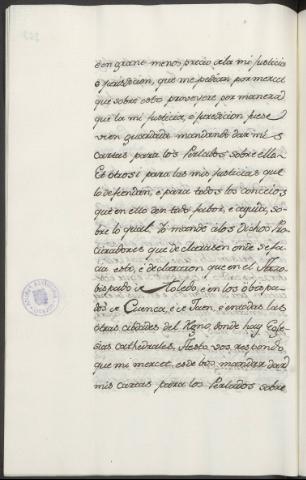 é en grane menos precio de la mi justicia
é jurisdicion, que me pedian por merced
que sobre esto proveyere por manera
que la mi justicia, é jurisdicion fuese
vien guardada mandando dar mis
cartas para los Perlados sobre ella.
Et otrosi para las mis justicias que
lo defiendan, é para todos los concejos
que en ello den todo fabor, é ayuda, so-
bre lo qual Io mande a los Dichos Pro-
curadores que declarasen onde se fa-
cia esto, é declararon que en el Arzo-
bispado de Toledo, é en los obispa-
dos de Cuenca, é de Jaen, é en todas las
otras cibdades del Regno, donde hay Egle-
sias cathedrales, A esto vos respondo
que mi merced, es de vos mandar dar
mis cartas para los Perlados sobre